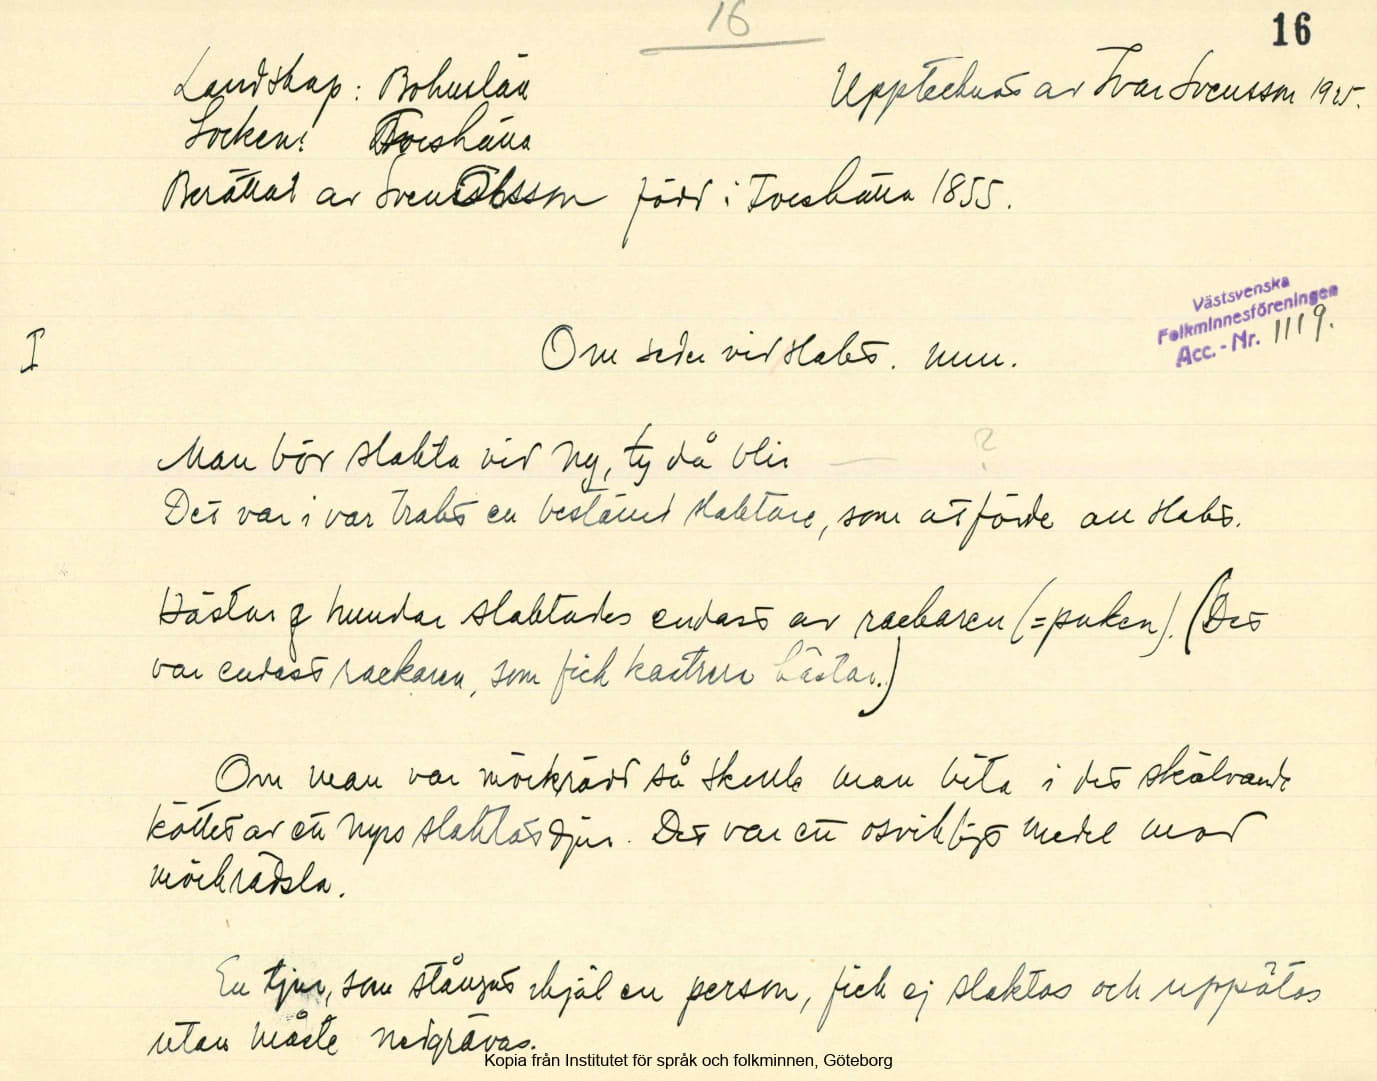 16
16
Landskap: Bohuslän
Upptecknat av Ivar Svensson 1925.
Socken: Foss hätta
Berättat av Sven Olsson född i Foss hätta 1855.
Västsvenska
Folkminnesföreningen
Acc. - Nr. 1119.
I
Om seder vid slakt. m.m.
Man bör slakta vid ny, ty då blir — ?
Det var i vår trakt en bestämd slaktare, som utförde all slakt.
Hästar & hundar slaktades endast av rackaren (=puken). (Det
var endast rackaren, som fick kastrera hästar.)
Om man var mörkrädd så skulle man bita i det skälvande
köttet av ett nyss slaktat djur. Det var ett osvikligt medel mod
mörkrädsla.
En tjur, som stångat ihjäl en person, fick ej slaktas och uppätas
utan måste nedgrävas.
Kopia från Institutet för språk och folkminnen, Göteborg